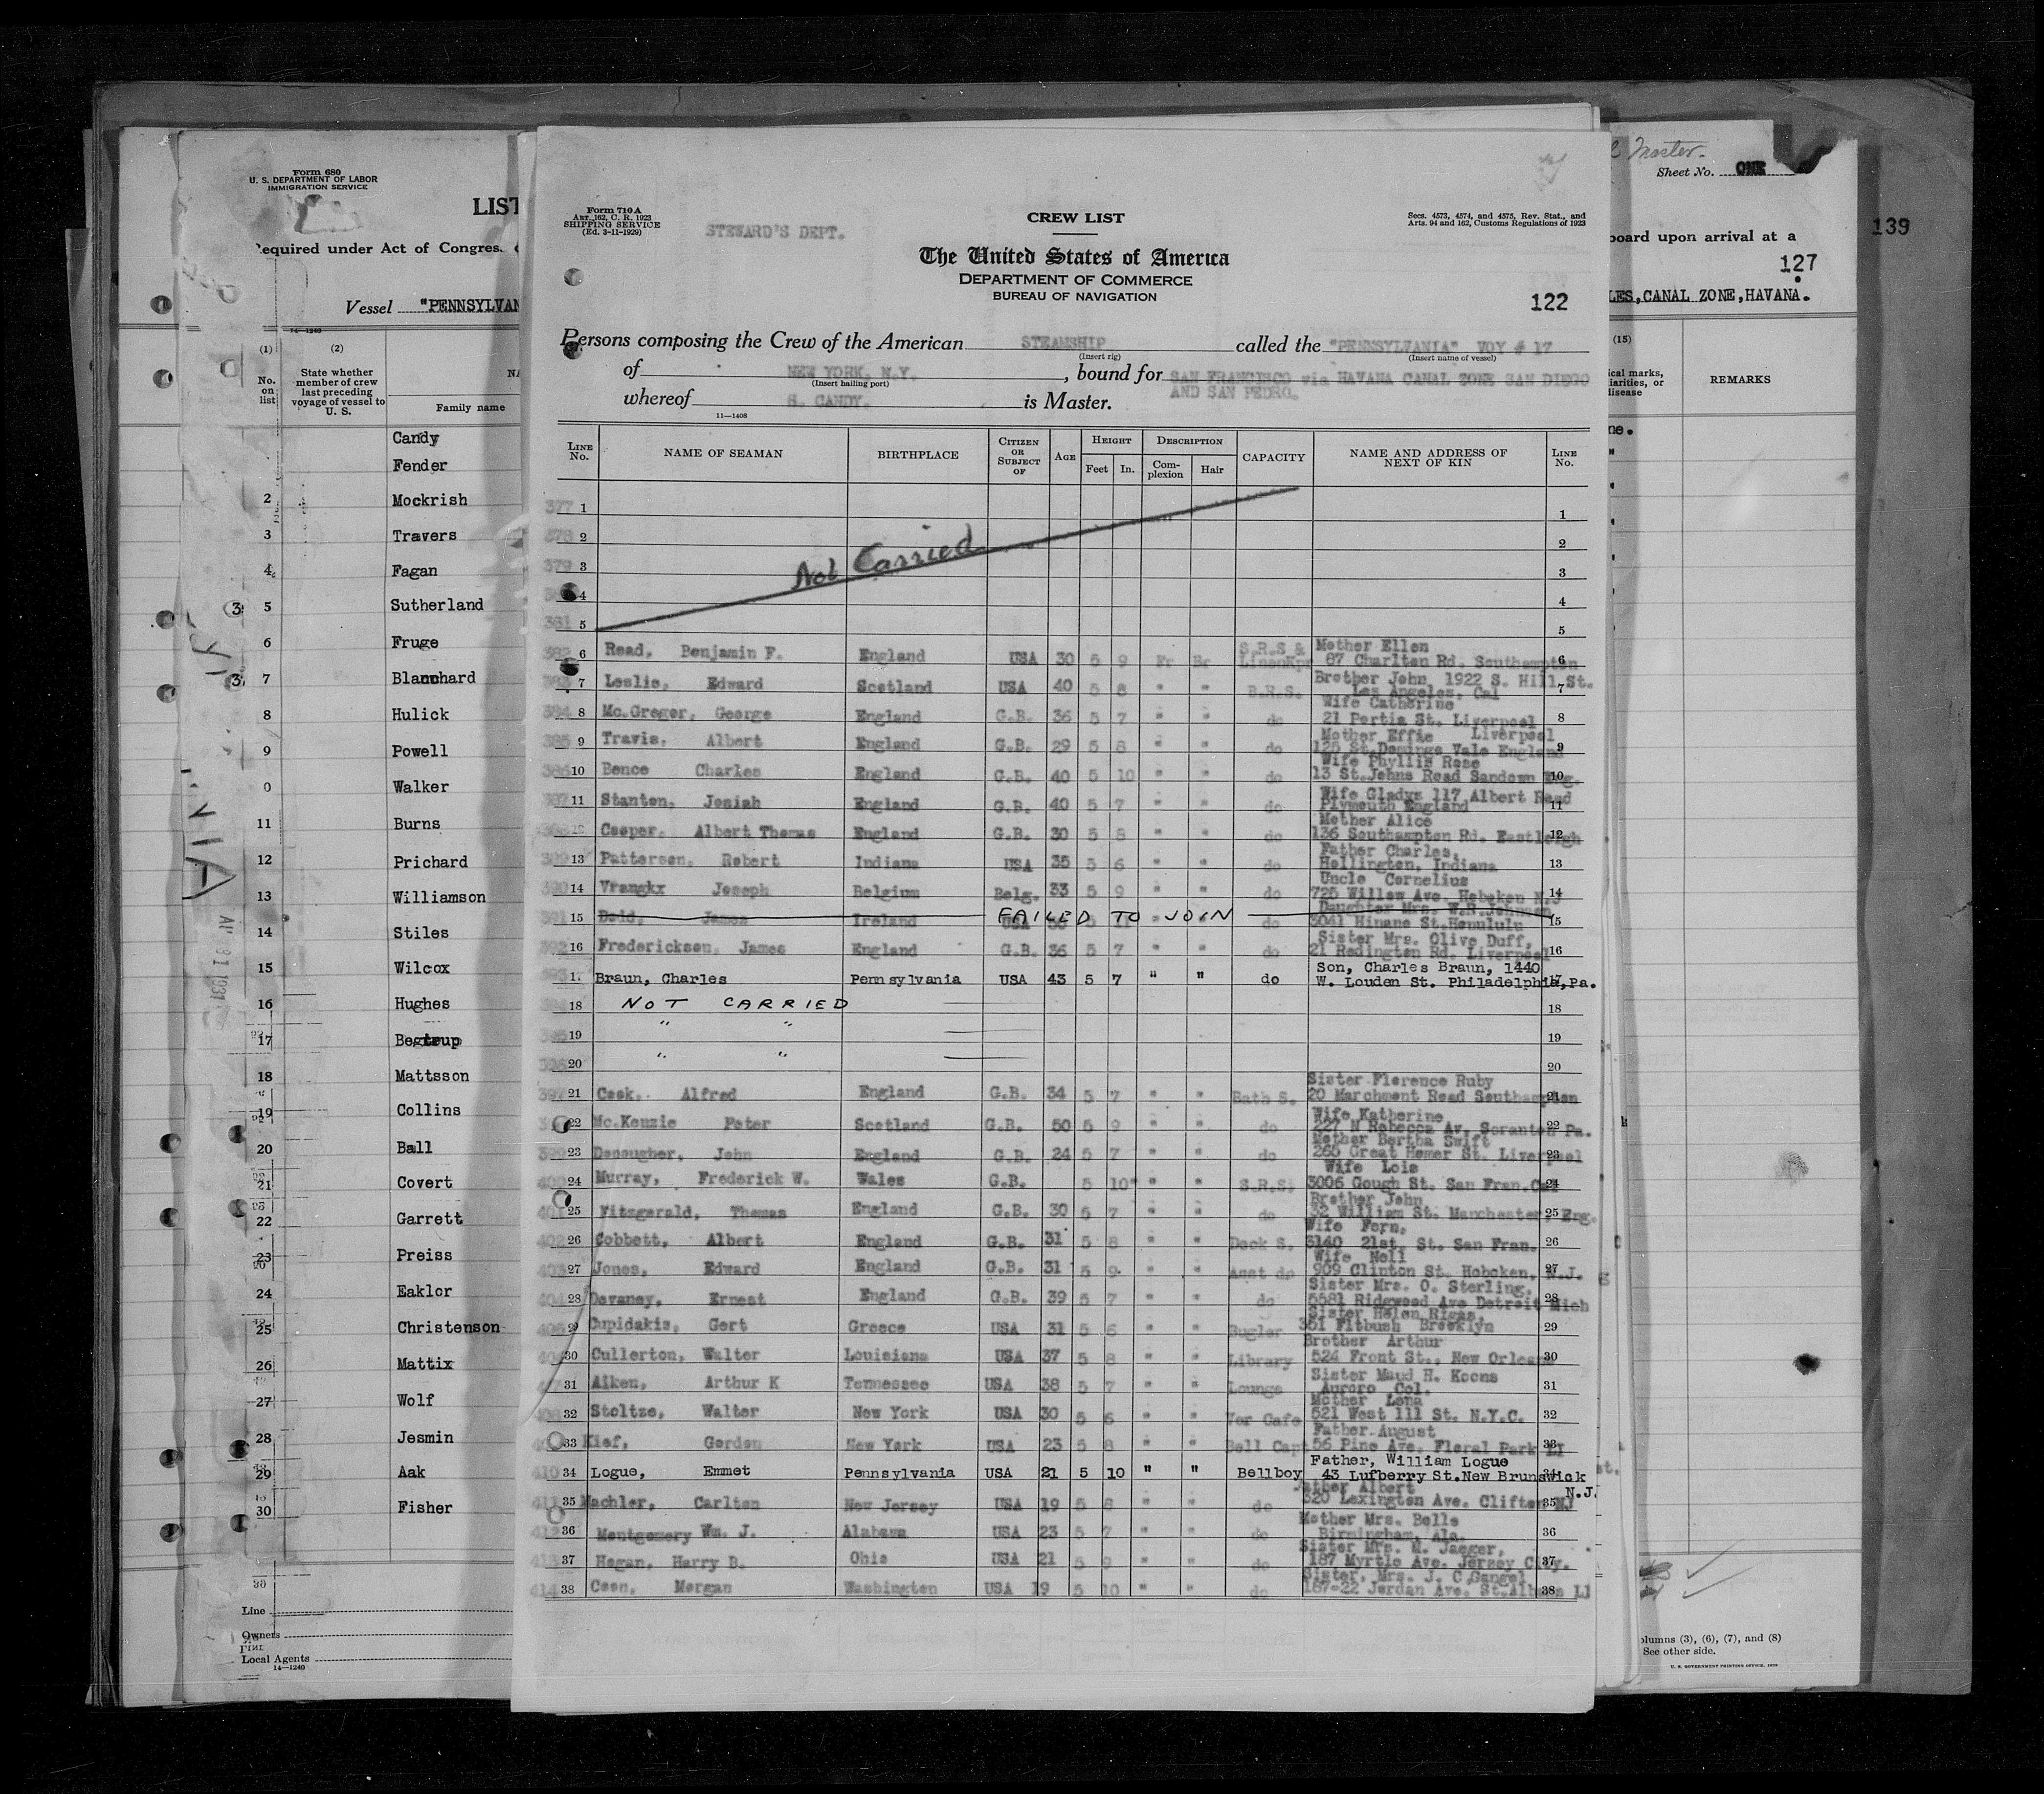 Form 680
U. S. DEPARTMENT OF LABOR
IMMIGRATION SERVICE
LIST
Required under Act of Congress
Vessel "PENNSYLVAN
(1)
(2)
No. on list
State whether member of crew last preceding voyage of vessel to U. S.
Family name
Candy
Fender
2 Mockrish
3 Travers
4 Fagan
5 Sutherland
6 Fruge
7 Blanchard
8 Hulick
9 Powell
0 Walker
11 Burns
12 Prichard
13 Williamson
14 Stiles
15 Wilcox
16 Hughes
17 Begtrup
18 Mattsson
19 Collins
20 Ball
21 Covert
22 Garrett
23 Preiss
24 Eaklor
25 Christenson
26 Mattix
27 Wolf
28 Jesmin
29 Aak
30 Fisher
Line
Owners
Local Agents
14—1240
Form 710 A
ART. 162, C. R. 1923
SHIPPING SERVICE
(Ed. 3-11-1929)
STEWARD'S DEPT.
CREW LIST
Secs. 4573, 4574, and 4575, Rev. Stat., and
Arts. 94 and 162, Customs Regulations of 1923
The United States of America
DEPARTMENT OF COMMERCE
BUREAU OF NAVIGATION
122
Persons composing the Crew of the American STEAMSHIP called the "PENNSYLVANIA" VOY # 17
(Insert rig) (Insert name of vessel)
of NEW YORK. N.Y. , bound for SAN FRANCISCO via HAVANA CANAL ZONE SAN DIEGO
(Insert hailing port) AND SAN PEDRO.
whereof S. CANDY. is Master.
11—1408
LINE No. NAME OF SEAMAN BIRTHPLACE CITIZEN OR SUBJECT OF AGE HEIGHT Feet In. DESCRIPTION Complexion Hair CAPACITY NAME AND ADDRESS OF NEXT OF KIN LINE No.
377 1 1
378 2 2
379 3 Not Carried 3
4 4
381 5 5
382 6 Read, Benjamin F. England USA 30 5 9 Fr Br S.R.S & LinenKpr Mother Ellen 87 Charlton Rd. Southampton 6
7 Leslie, Edward Scotland USA 40 5 8 " " B.R.S. Brother John, 1922 S. Hill St. Los Angeles, Cal 7
384 8 Mc.Gregor, George England G.B. 36 5 7 " " do Wife Catherine 21 Portia St. Liverpool 8
385 9 Travis, Albert England G.B. 29 5 8 " " do Mother Effie Liverpool 125 St.Domingo Vale England 9
386 10 Bence Charles England G.B. 40 5 10 " " do Wife Phyllis Rose 13 St.Johns Road Sandown Eng. 10
387 11 Stanton, Josiah England G.B. 40 5 7 " " do Wife Gladys 117 Albert Road Plymouth England 11
388 12 Cooper. Albert Thomas England G.B. 30 5 8 " " do Mother Alice 136 Southampton Rd. Eastleigh 12
389 13 Patterson, Robert Indiana USA 35 5 6 " " do Father Charles, Hollington, Indiana 13
390 14 Vrangkx Joseph Belgium Belg. 33 5 9 " " do Uncle Cornelius 725 Willow Ave. Hoboken N.J 14
391 15 Dodd, James Ireland USA FAILED TO JOIN do Daughter Mrs. W.R.Johnson 3041 Hinano St.Honolulu 15
392 16 Fredericksen, James England G.B. 36 5 7 " " do Sister Mrs. Olive Duff, 21 Redington Rd. Liverpool 16
393 17 Braun, Charles Pennsylvania USA 43 5 7 " " do Son, Charles Braun, 1440 W. Louden St. Philadelphia, Pa. 17
18 NOT CARRIED 18
395 19 " " 19
396 20 " " 20
397 21 Cook. Alfred England G.B. 34 5 7 " " Bath S. Sister Florence Ruby 20 Marchment Road Southampton 21
22 Mc.Kenzie Peter Scotland G.B. 50 5 9 " " do Wife Katherine 227 N Rebecca Av. Scranton Pa. 22
399 23 Denougher, John England G.B. 24 5 7 " " do Mother Bertha Swift 265 Great Homer St. Liverpool 23
400 24 Murray, Frederick W. Wales G.B. 5 10 " " S.R.S. Wife Lois 3006 Gough St. San Fran.Cal 24
401 25 Fitzgerald, Thomas England G.B. 30 5 7 " " do Brother John 32 William St. Manchester, Eng. 25
402 26 Cobbett, Albert England G.B. 31 5 8 " " Deck S. Wife Fern, 3140 21st. St. San Fran. 26
403 27 Jones, Edward England G.B. 31 5 9 " " Asst do Wife Nell 909 Clinton St. Hoboken, N.J. 27
404 28 Devaney, Ernest England G.B. 39 5 7 " " do Sister Mrs. O. Sterling, 5581 Ridgewood Ave Detroit Mich 28
405 29 Cupidakis, Gert Greece USA 31 5 6 " " Bugler Sister Helen Rigas, 351 Fltbush Brooklyn 29
30 Cullerton, Walter Louisiana USA 37 5 8 " " Library Brother Arthur 524 Front St., New Orleans 30
31 Aiken, Arthur K Tennessee USA 38 5 7 " " Lounge Sister Maud H. Koons Auroro Col. 31
32 Stoltze, Walter New York USA 30 5 6 " " Ver Cafe Mother Lena 521 West 111 St. N.Y.C. 32
33 Kief, Gordon New York USA 23 5 8 " " Bell Capt Father August 56 Pine Ave. Floral Park LI 33
410 34 Logue, Emmet Pennsylvania USA 21 5 10 " " Bellboy Father, William Logue 43 Lufberry St.New Brunswick N.J. 34
411 35 Machler, Carlton New Jersey USA 19 5 8 " " do Father Albert 320 Lexington Ave. Clifton NJ 35
412 36 Montgomery Wm. J. Alabama USA 23 5 7 " " do Mother Mrs. Belle Birmingham, Ala. 36
413 37 Hogan, Harry B. Ohio USA 21 5 9 " " do Sister Mrs. M. Jaeger, 187 Myrtle Ave. Jersey City. 37
414 38 Coen, Morgan Washington USA 19 5 10 " " do Sister, Mrs. J. C Gangel 187-22 Jordan Ave. St.Albans LI 38
Master.
Sheet No. ONE
139
board upon arrival at a
127
LES, CANAL ZONE, HAVANA.
(15)
ical marks,
liarities, or
disease
REMARKS
ne.
olumns (3), (6), (7), and (8)
See other side.
U. S. GOVERNMENT PRINTING OFFICE